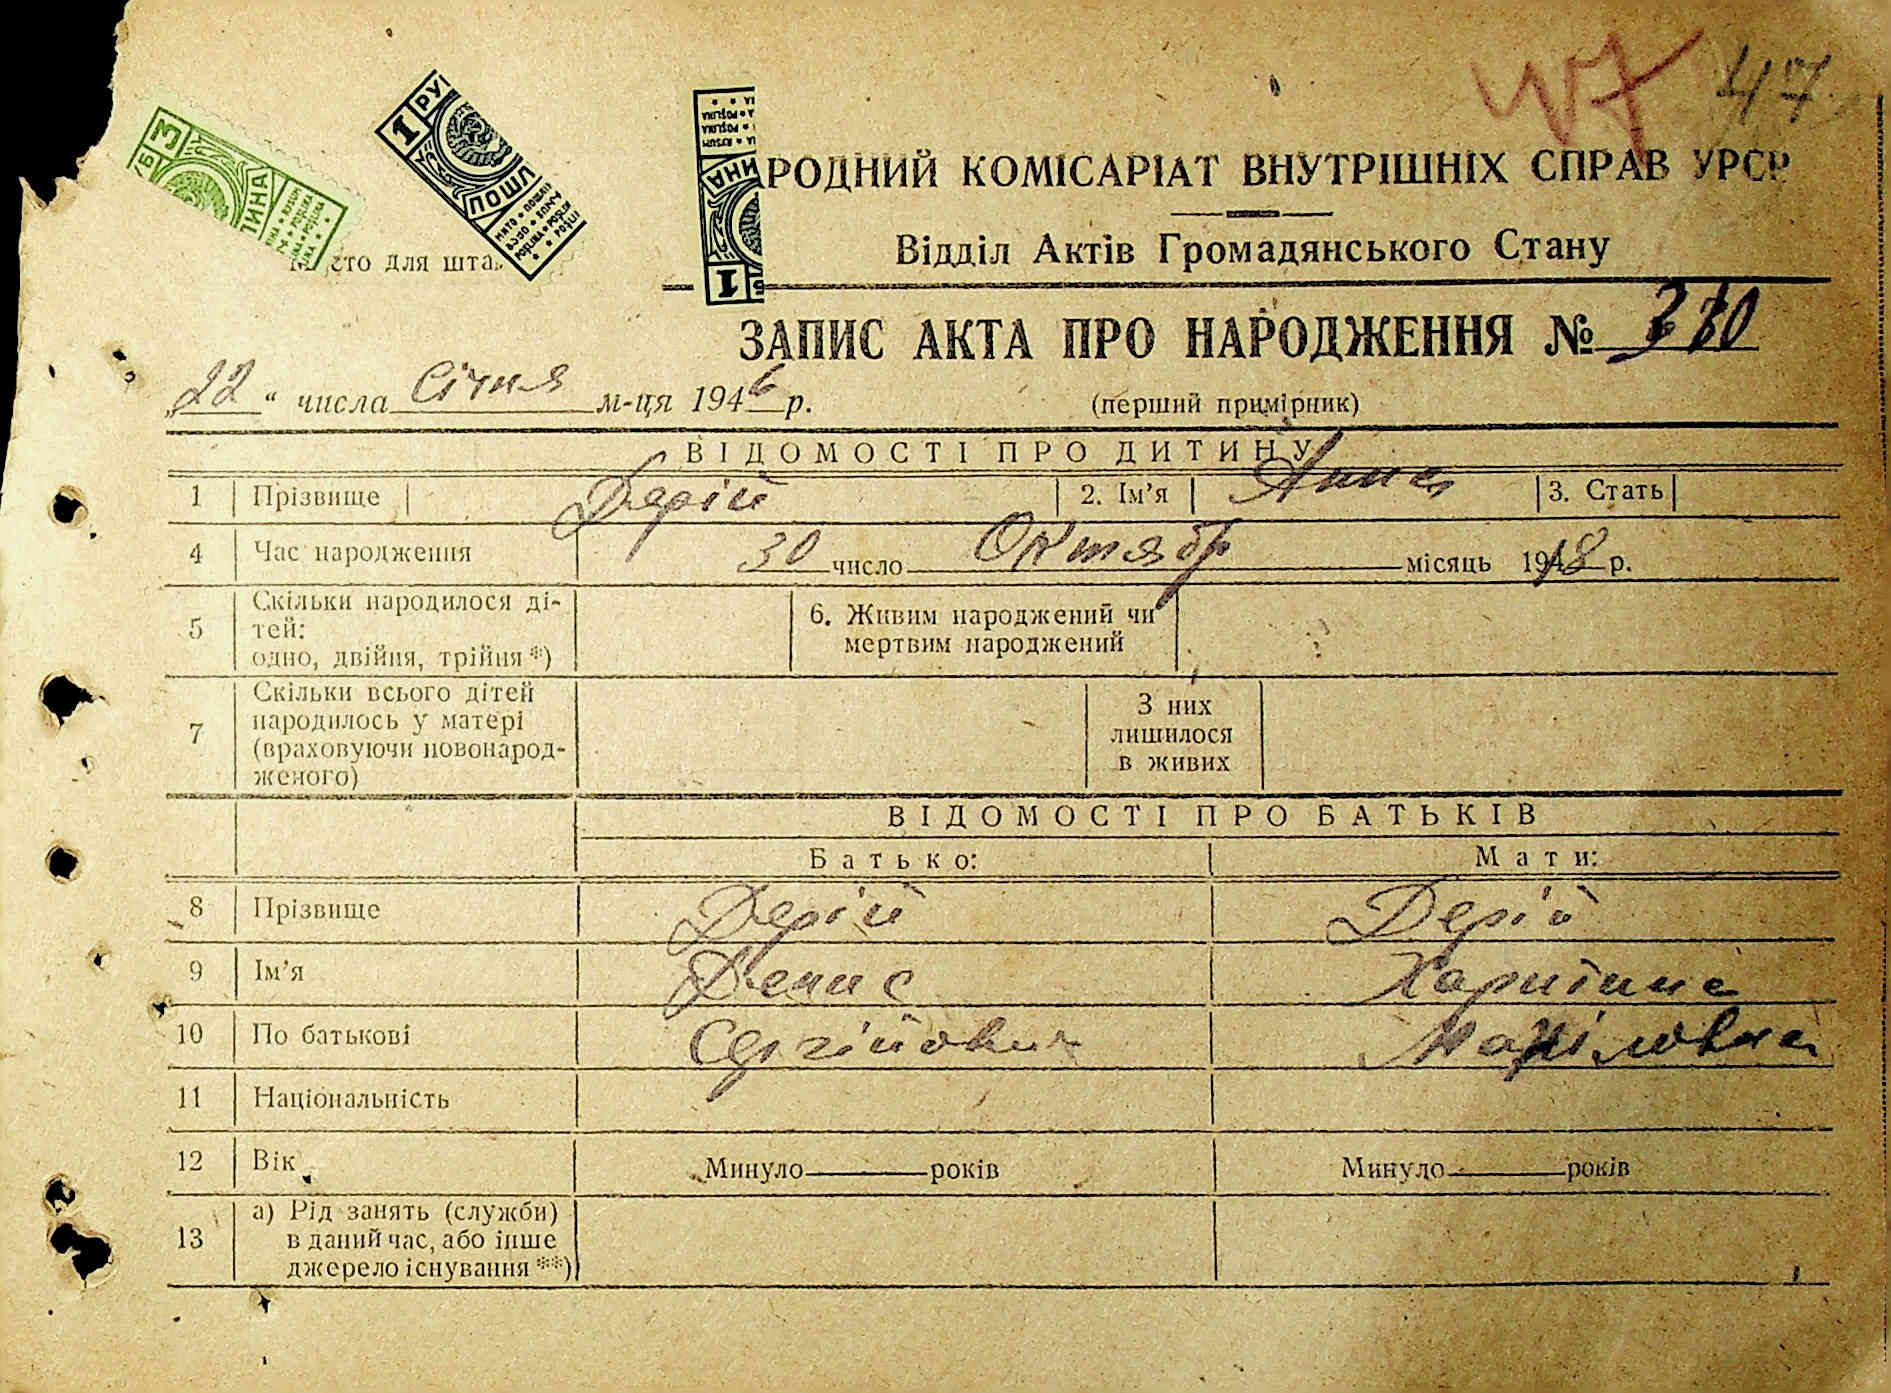 47
РОДНИЙ КОМІСАРІАТ ВНУТРІШНІХ СПРАВ УРСР
Відділ Актів Громадянського Стану
сто для шта
ЗАПИС АКТА ПРО НАРОДЖЕННЯ № 330
„22“ числа Січня м-ця 1946 р.
(перший примірник)
ВІДОМОСТІ ПРО ДИТИНУ
1 Прізвище Дерій 2. Ім’я Анна 3. Стать
4 Час народження 30 число Октябр місяць 1918 р.
5 Скільки народилося ді-
тей:
одно, двійня, трійня *)
6. Живим народжений чи
мертвим народжений
7 Скільки всього дітей
народилось у матері
(враховуючи новонарод-
женого)
З них
лишилося
в живих
ВІДОМОСТІ ПРО БАТЬКІВ
Батько: Мати:
8 Прізвище Дерій Дерій
9 Ім’я Денис Харитина
10 По батькові Сергійович
11 Національність
12 Вік Минуло років Минуло років
13 а) Рід занять (служби)
в даний час, або інше
джерело існування **)
3
1 РУ
ПОШЛ
ИНА
1